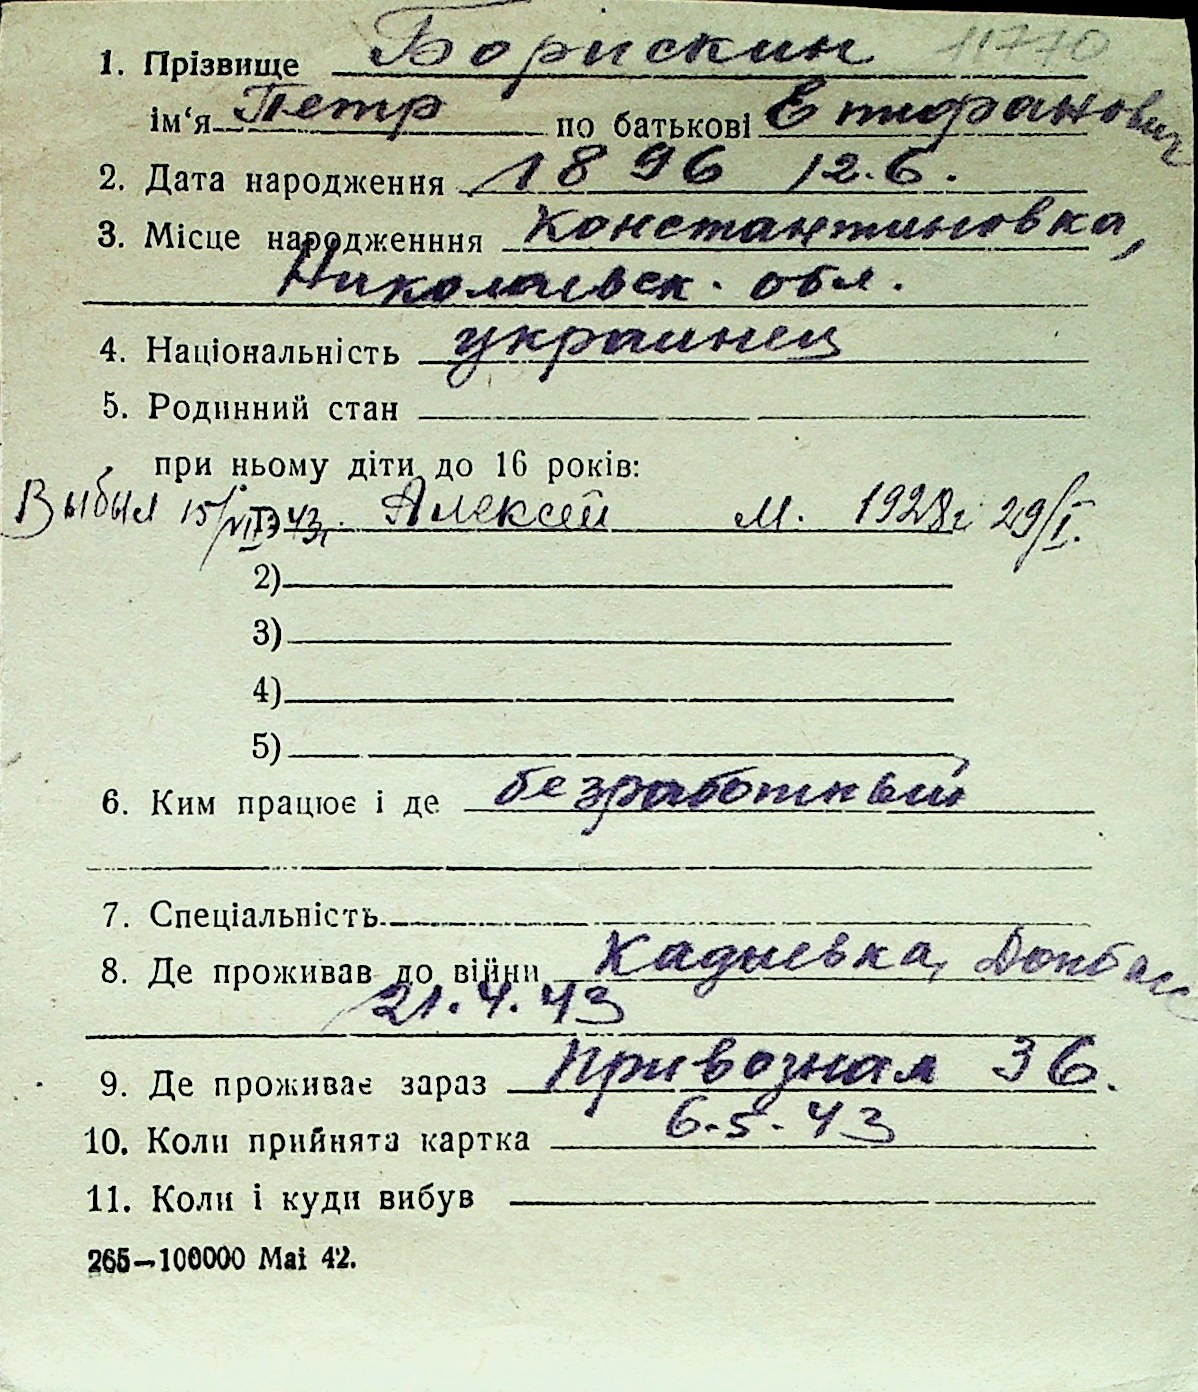 1. Прізвище Борискин 11770
ім‘я Петр по батькові Епифанович
2. Дата народження 1896 12.6.
3. Місце народженння Константиновка,
Николаевск. обл.
4. Національність украинец
5. Родинний стан
при ньому діти до 16 років:
Выбыл 15/VIII 43г. Алексей м. 1928г 29/I.
2)
3)
4)
5)
6. Ким працює і де безработный
7. Спеціальність
8. Де проживав до війни Кадиевка, Донбас
21.4.43
9. Де проживає зараз Привозная 36.
10. Коли прийнята картка 6.5.43
11. Коли і куди вибув
265—100000 Mai 42.